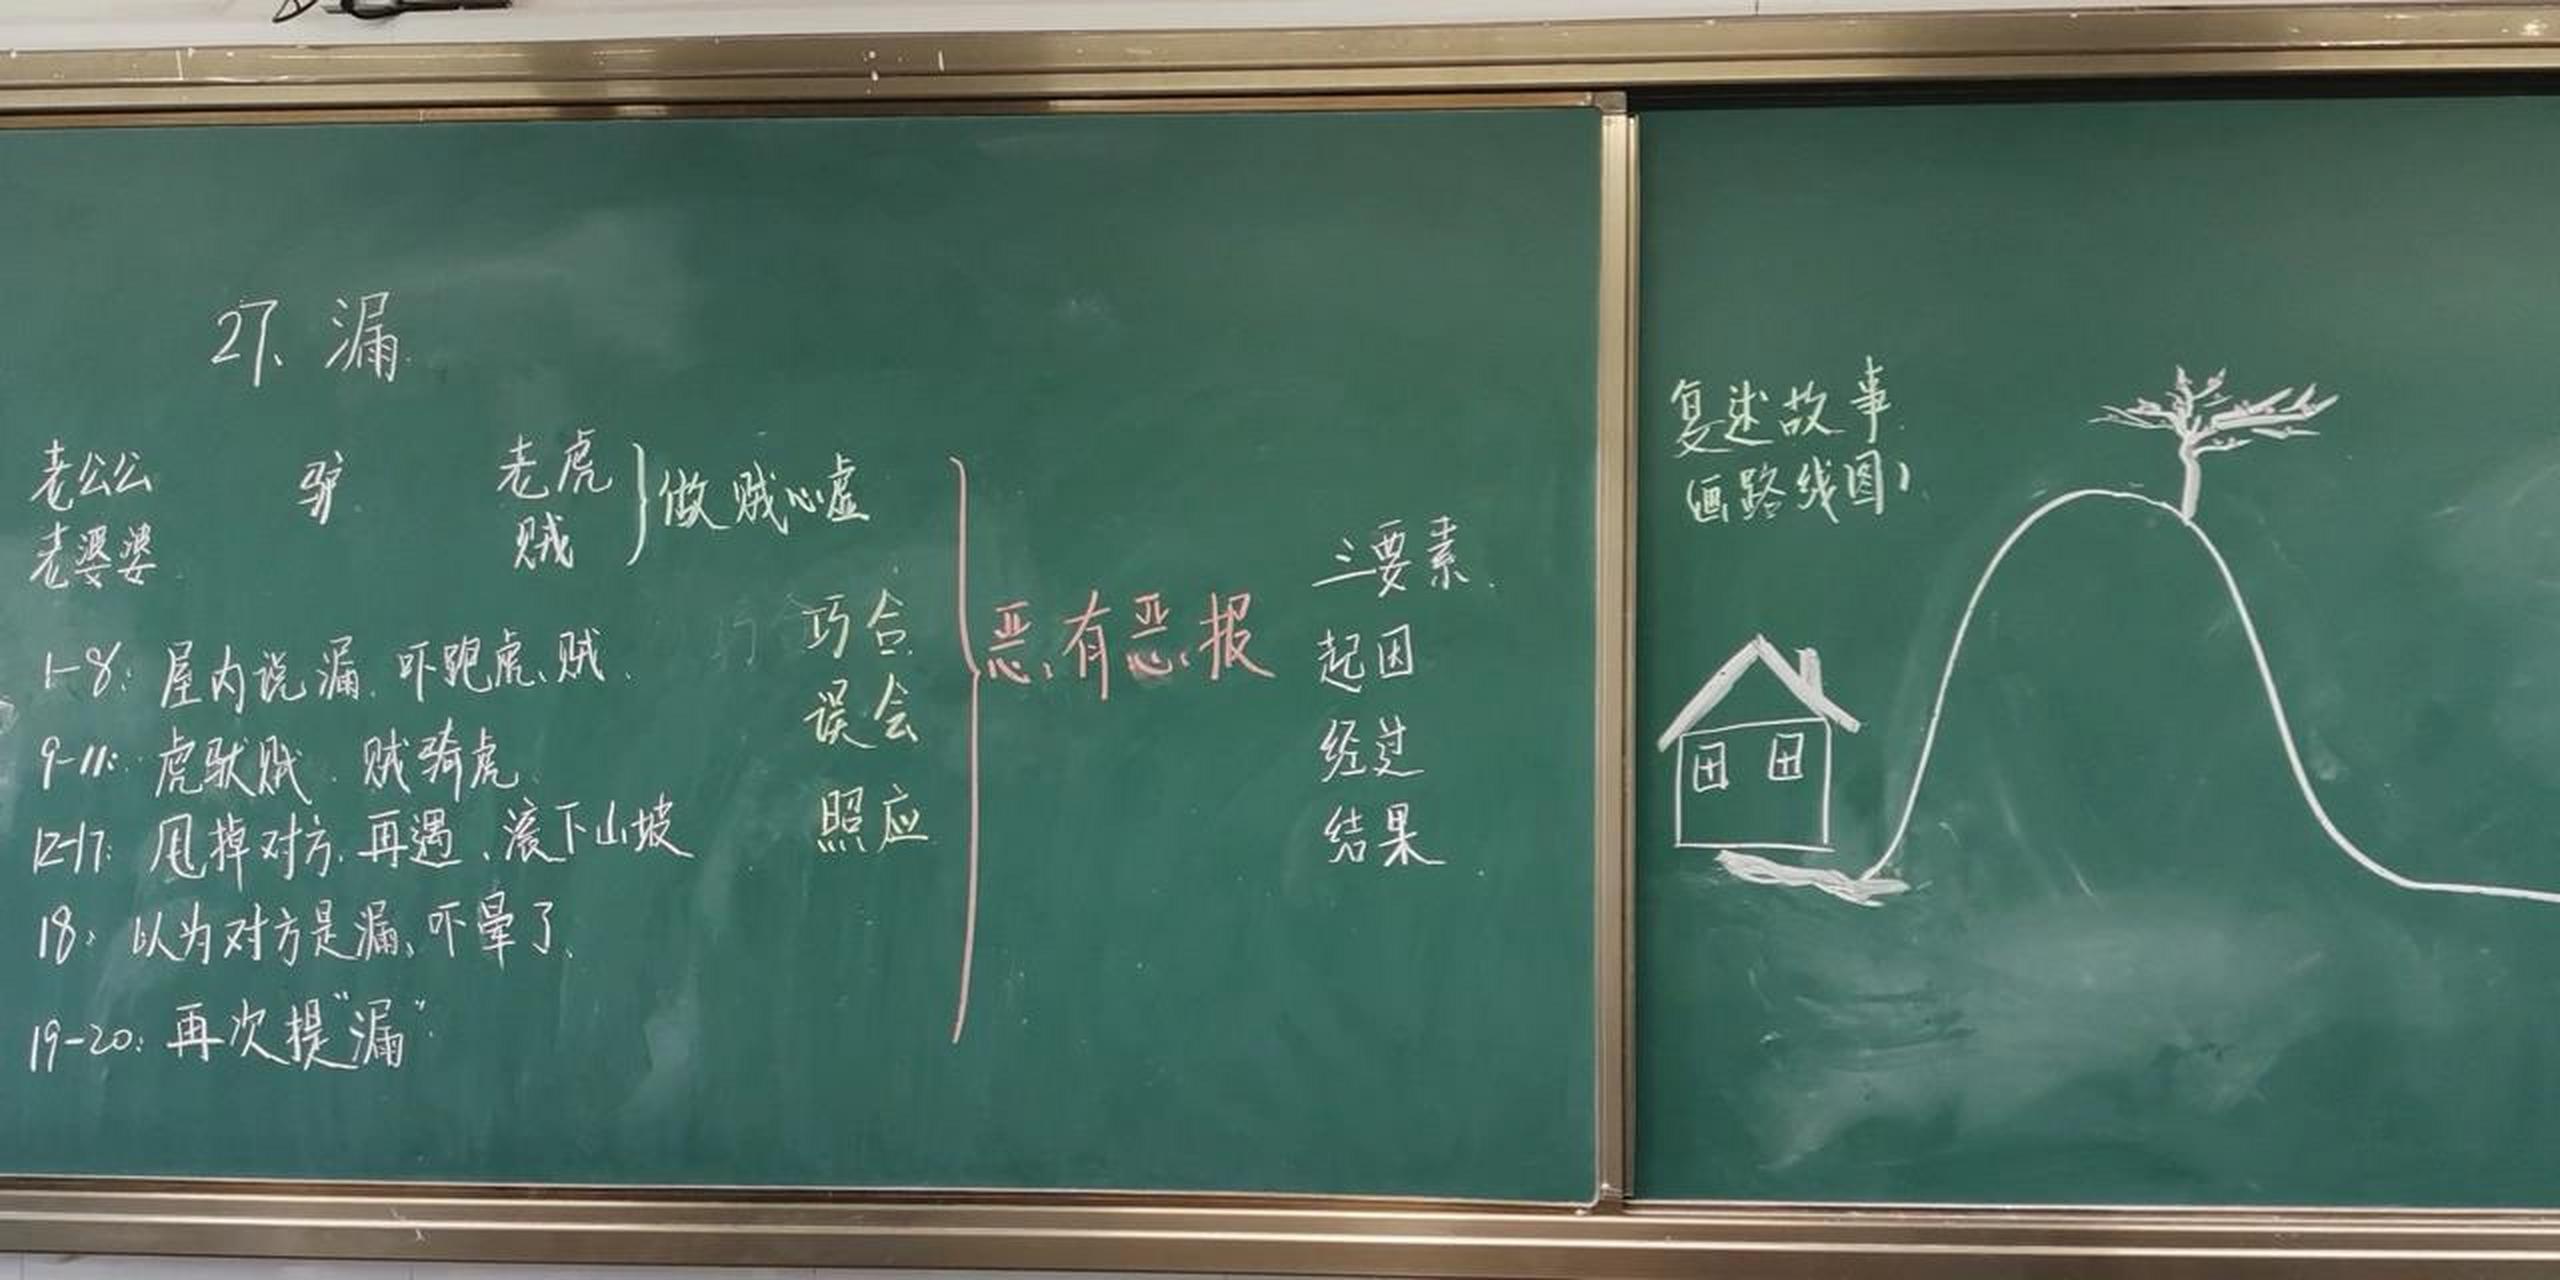 27、漏
老公公
老婆婆
驴
老虎
贼
做贼心虚
1-8：屋内说漏，吓跑虎、贼.
9-11：虎驮贼，贼骑虎
12-17：甩掉对方，再遇，滚下山坡
18：以为对方是漏，吓晕了.
19-20：再次提“漏”
巧合
误会
照应
恶有恶报
三要素
起因
经过
结果
复述故事
（画路线图）